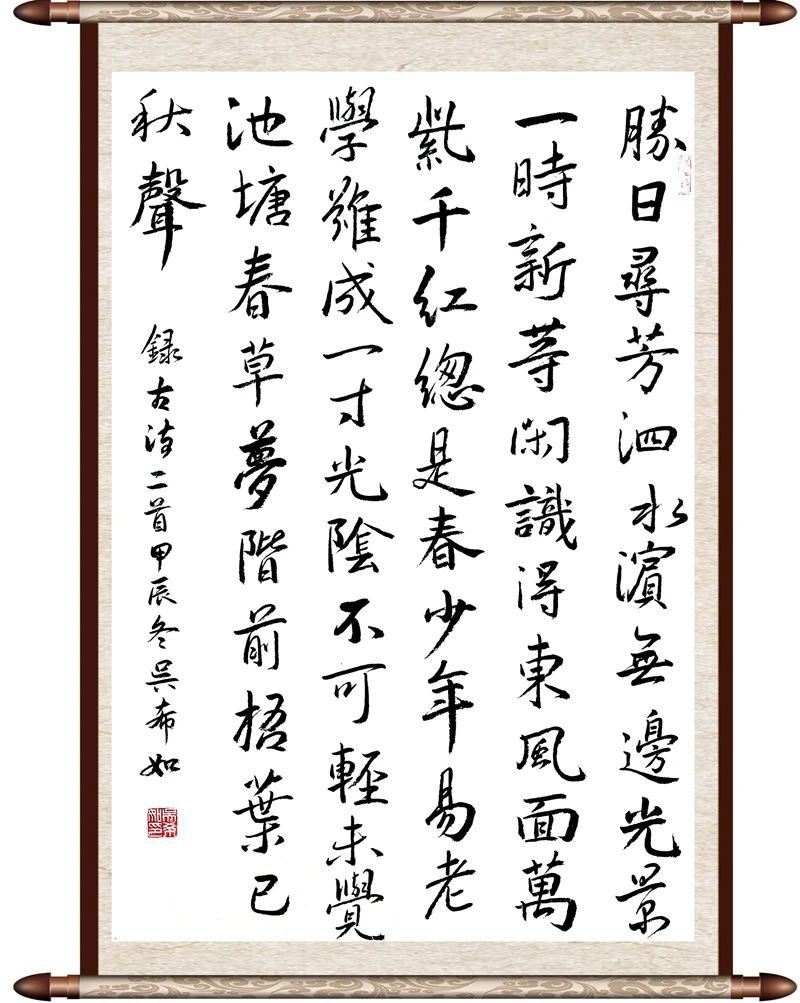 勝日尋芳泗水濵無邊光景
一時新荨閑識得東風面萬
紫千红總是春少年易老
學雖成一寸光陰不可輕未覺
池塘春草夢階前梧葉已
秋聲
録古诗二首甲辰冬吴希如